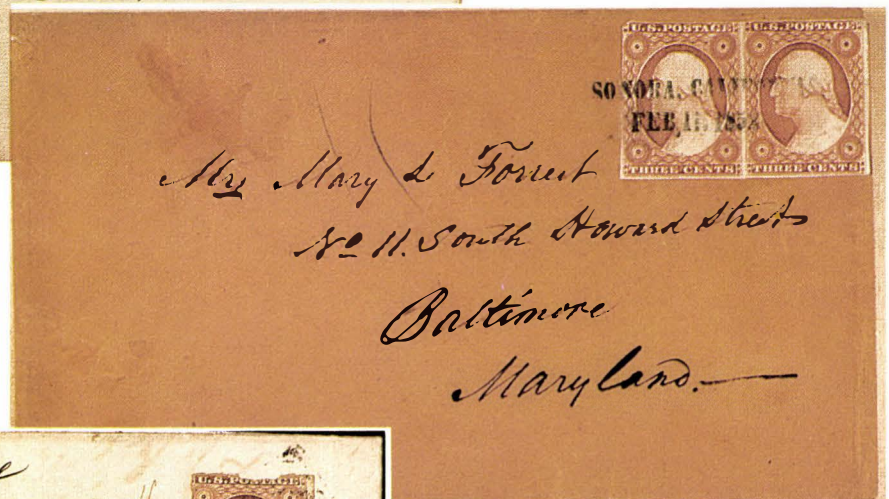 U.S. POSTAGE U.S. POSTAGE
SONORA, CALIFORNIA
FEB 11, 185
THREE CENTS THREE CENTS
Mrs Mary L Forrest
No 11. South Howard Street
Baltimore
Maryland.
U.S. POSTAGE